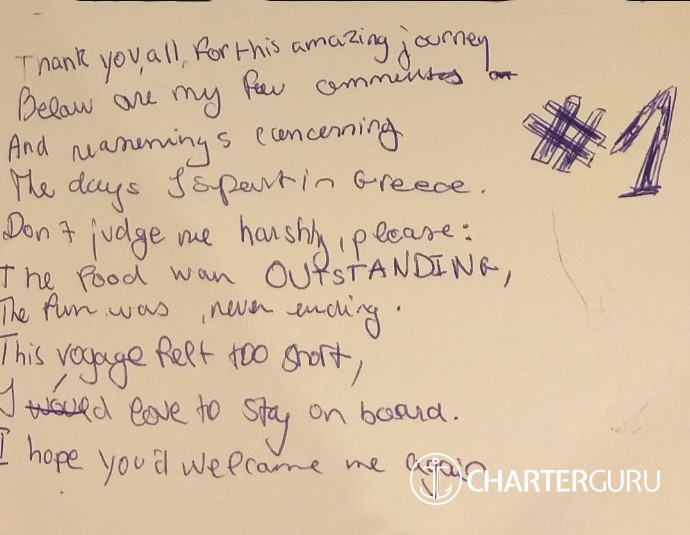 Thank you, all, for this amazing journey
Below are my few comments
And reasonings concerning
The days I spent in Greece.
Don't judge me harshly, please:
The food was OUTSTANDING,
The fun was never ending.
This voyage felt too short,
I would love to stay on board.
I hope you'd welcome me again
#1
CHARTERGURU